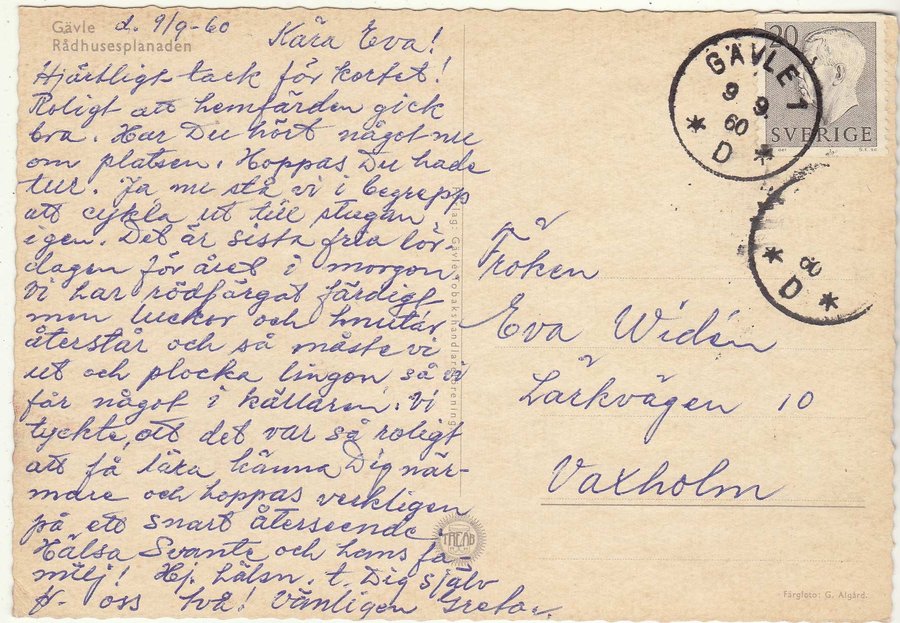 Gävle d. 9/9-60
Rådhusesplanaden
Kära Eva!
Hjärtligt tack för kortet!
Roligt att hemfärden gick
bra. Har Du hört något nu
om platsen. Hoppas Du hade
tur. Ja nu stå vi i begrepp
att cykla ut till stugan
igen. Det är sista fria lör-
dagen för året i morgon.
Vi har rödfärgat färdigt
men luckor och knutar
återstår och så måste vi
ut och plocka lingon, så vi
får något i källaren. Vi
tyckte, att det var så roligt
att få lära känna Dig när-
mare och hoppas verkligen
på ett snart återseende.
Hälsa Svante och hans fa-
milj! Hj. hälsn. t. Dig själv
fr. oss två! Vänligen Greta.
Förlag: Gävle Tobakshandlareförening
TREÅB
20
SVERIGE
GÄVLE 1
9 9.
60
D
60
D
Fröken
Eva Widén
Lärkvägen 10
Vaxholm
Färgfoto: G. Algård.